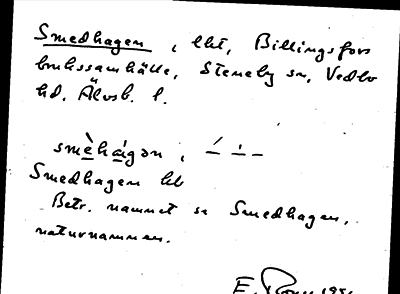 Smedhagen, lht, Billingsfors
brukssamhälle, Steneby sn, Vedbo
hd. Älvsb. l.
smèhágən, – – –
Smedhagen lht
Betr. namnet se Smedhagen,
naturnamnen.
E.